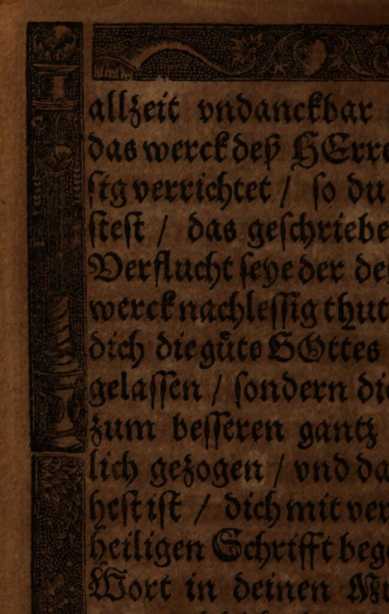 allzeit vndanckbar
das werck deß HErre
sig verrichtet / so du
stest / das geschriebe
Verflucht seye der de
werck nachlessig thut
dich die güte GOttes
gelassen / sondern die
zum besseren gantz
lich gezogen / vnd da
hest ist / dich mit ver
heiligen Schrifft beg
Wort in deinen